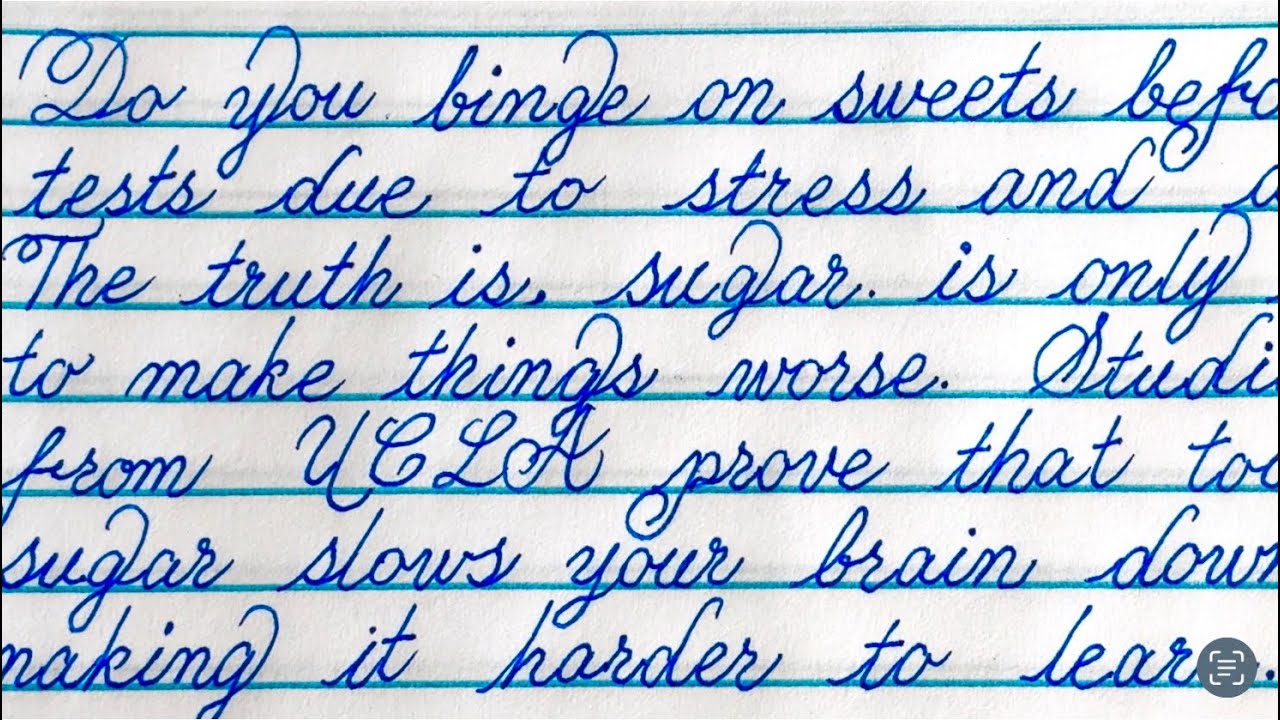 Do you binge on sweets befo
tests due to stress and a
The truth is, sugar is only
to make things worse. Studi
from UCLA prove that too
sugar slows your brain down
making it harder to learn.